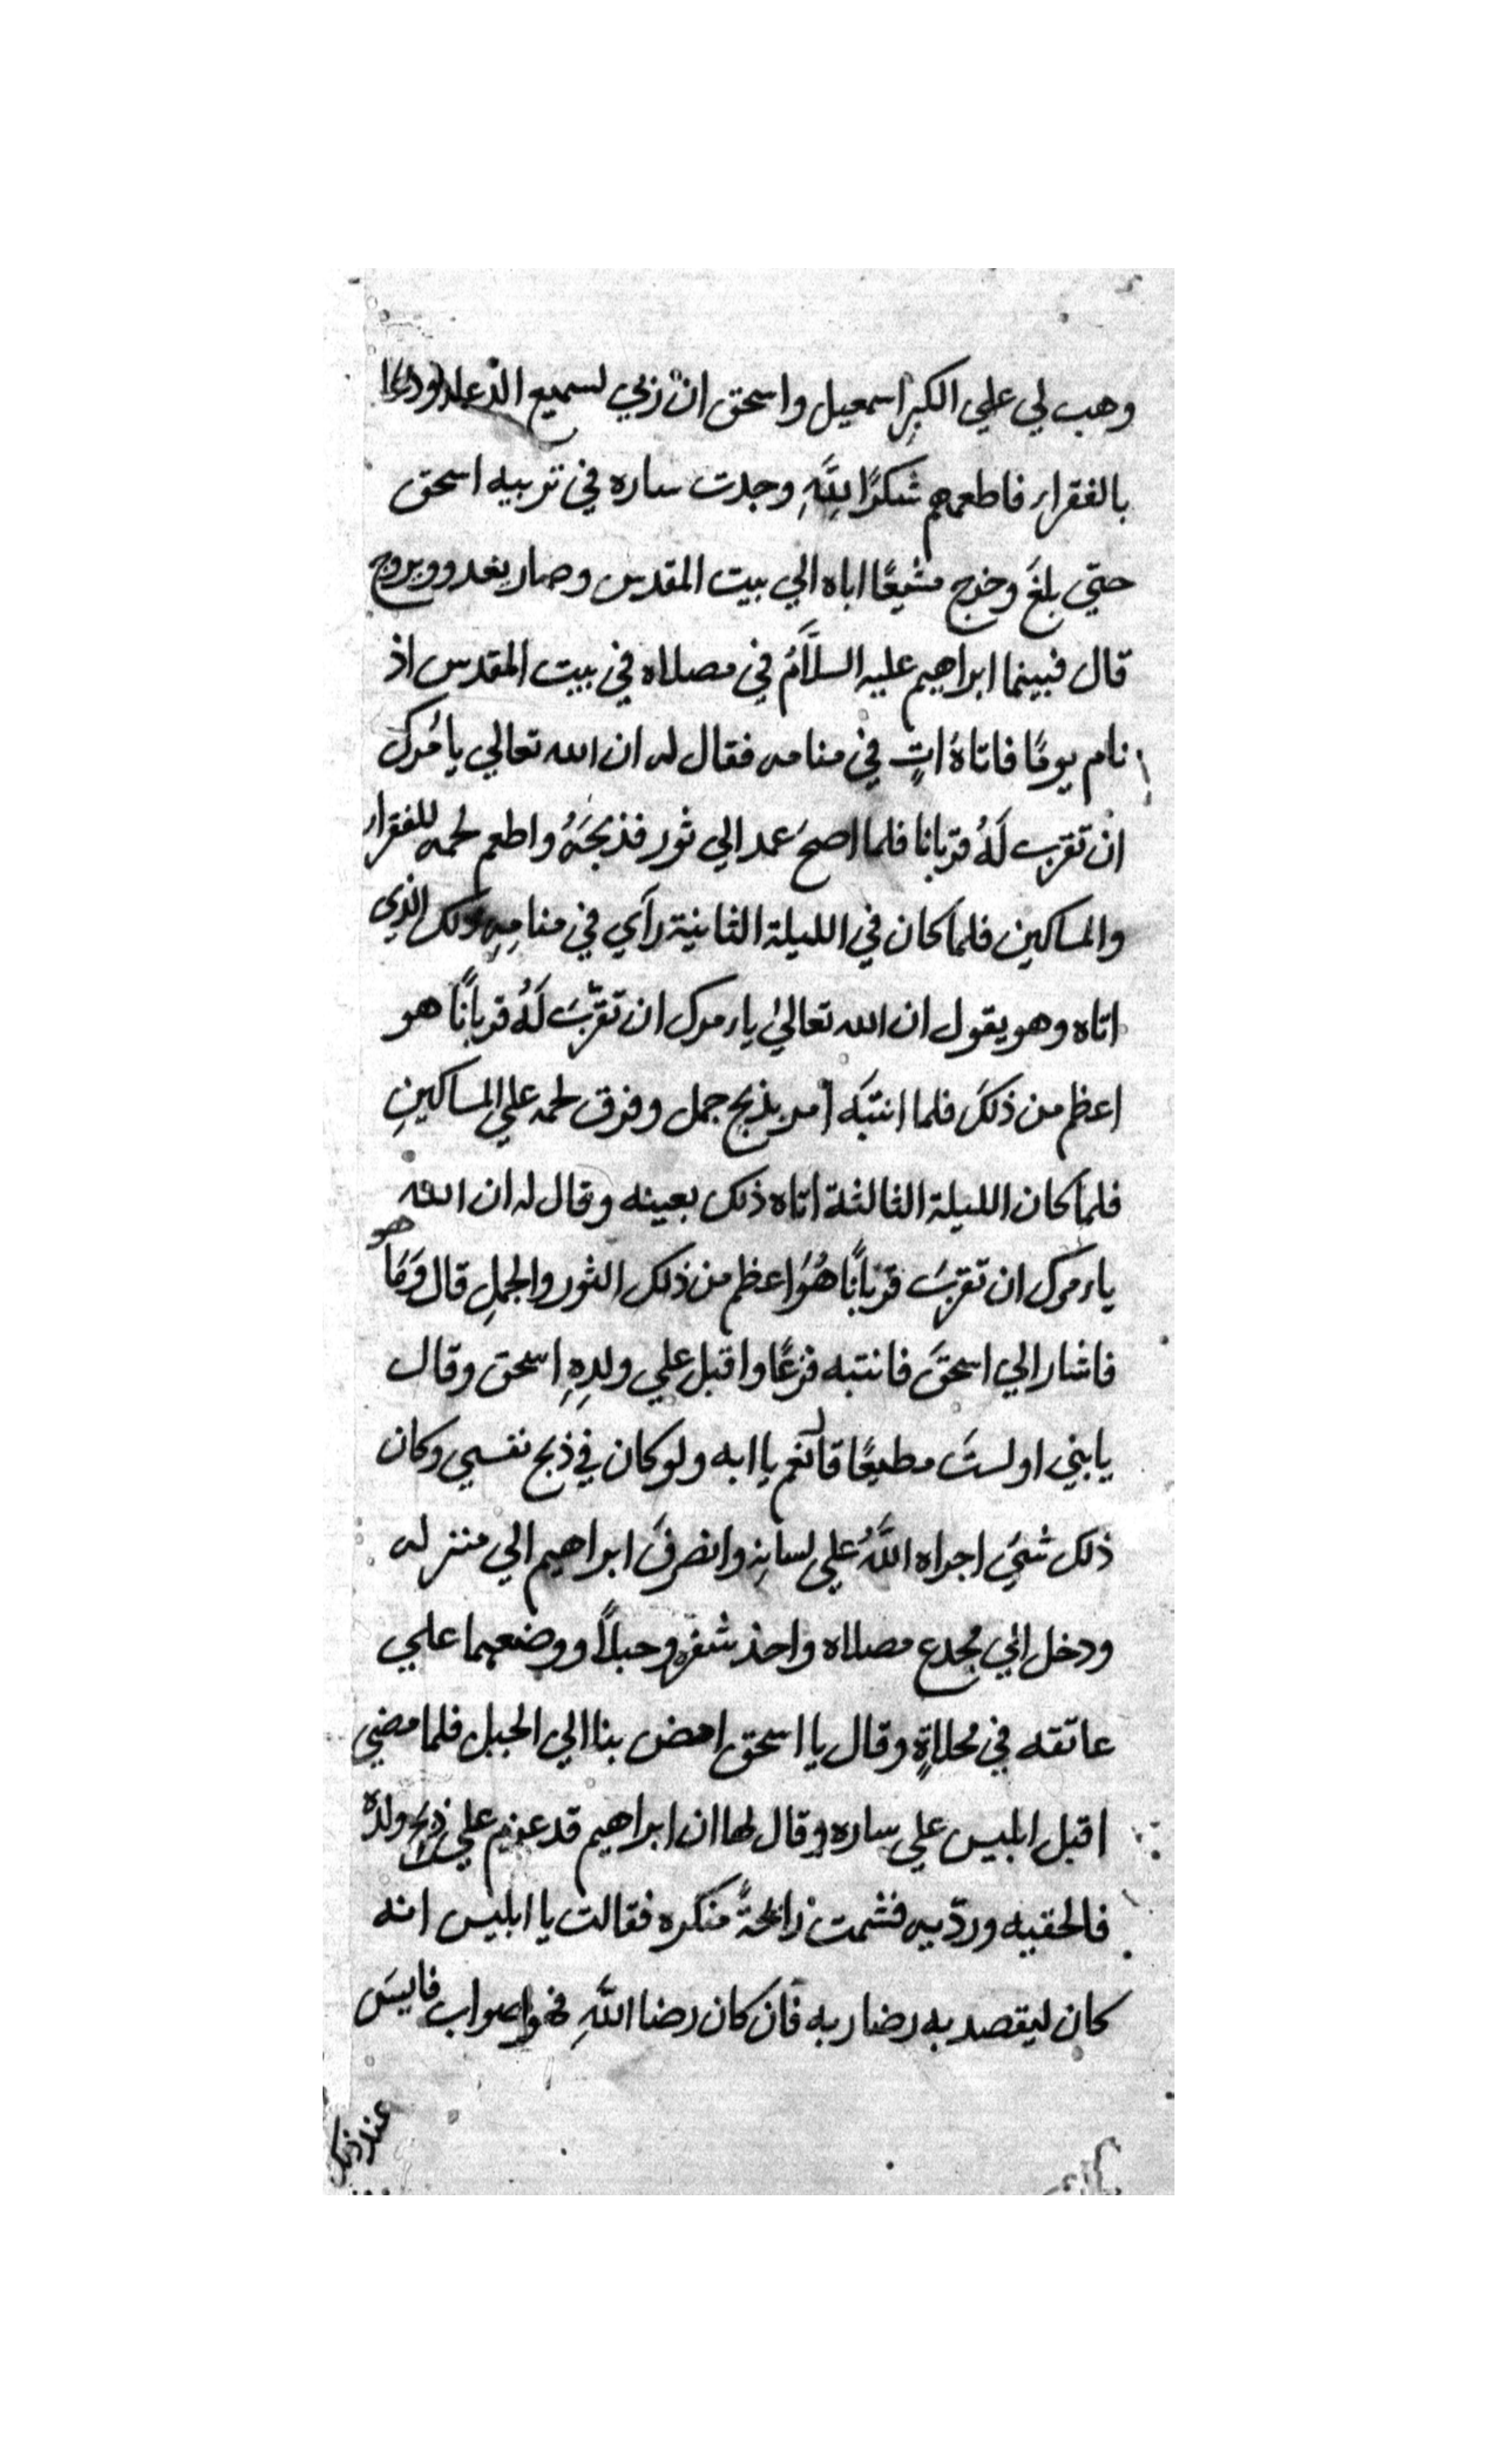 وهب لي علي الكبر اسمعيل واسحق ان ربي لسميع الدعا ودعا
بالفقراء فاطعمهم شكرًا لِلَّهِ وجدت ساره في تربيه اسحق
حتي بلغَ وخرج مشيعًا اباه الي بيت المقدس وصار يغدو ويروح
قال فبينما ابراهيم عليه السلَّامُ في مصلاه في بيت المقدس اذ
نام يومًا فاتاهُ اتٍ في منامه فقال له ان الله تعالي يامُرك
ان تقرب لَهُ قربانا فلما اصبحَ عمد الي ثور فذبحَهُ واطعم لحمه للفقراء
والمساكين فلما كان في الليلة الثانية رآي في منامِهِ ذلك الذي
اتاه وهو يقول ان الله تعالي يامرك ان تقرّبَ لَهُ قربانًا هو
اعظم من ذلكَ فلما انتبَه امر بذبح جمل وفرق لحمه علي المساكينِ
فلما كان الليلة الثالثة اتاه ذلك بعينه وقال له ان الله
يامرك ان تقربَ قربانًا هُوَ اعظم من ذلك الثور والجملِ قال وَمَا هو
فاشار الي اسحقَ فانتبه فزعًا واقبل علي ولدِهِ اسحق وقال
يابني اولستَ مطيعًا قال نعم يا ابه ولو كان في ذبح نفسي وكان
ذلك شيَ اجراه اللَّهُ علي لسانِهِ وانصرفَ ابراهيم الي منزله
ودخل الي مخدع مصلاه واخذ شفره وحبلاً ووضعهما علي
عاتقه في مخلاةٍ وقال يا اسحق امض بنا الي الجبل فلما مضي
اقبل ابليس علي ساره وقال لها ان ابراهيم قد عزم علي ذبح ولده
فالحقيه وردّيه فشمت رائحةً منكره فقالت يا ابليس انه
كان ليقصد به رضا ربه فان كان رضا اللَّهِ فهو صواب فايسَ
عند ذلك